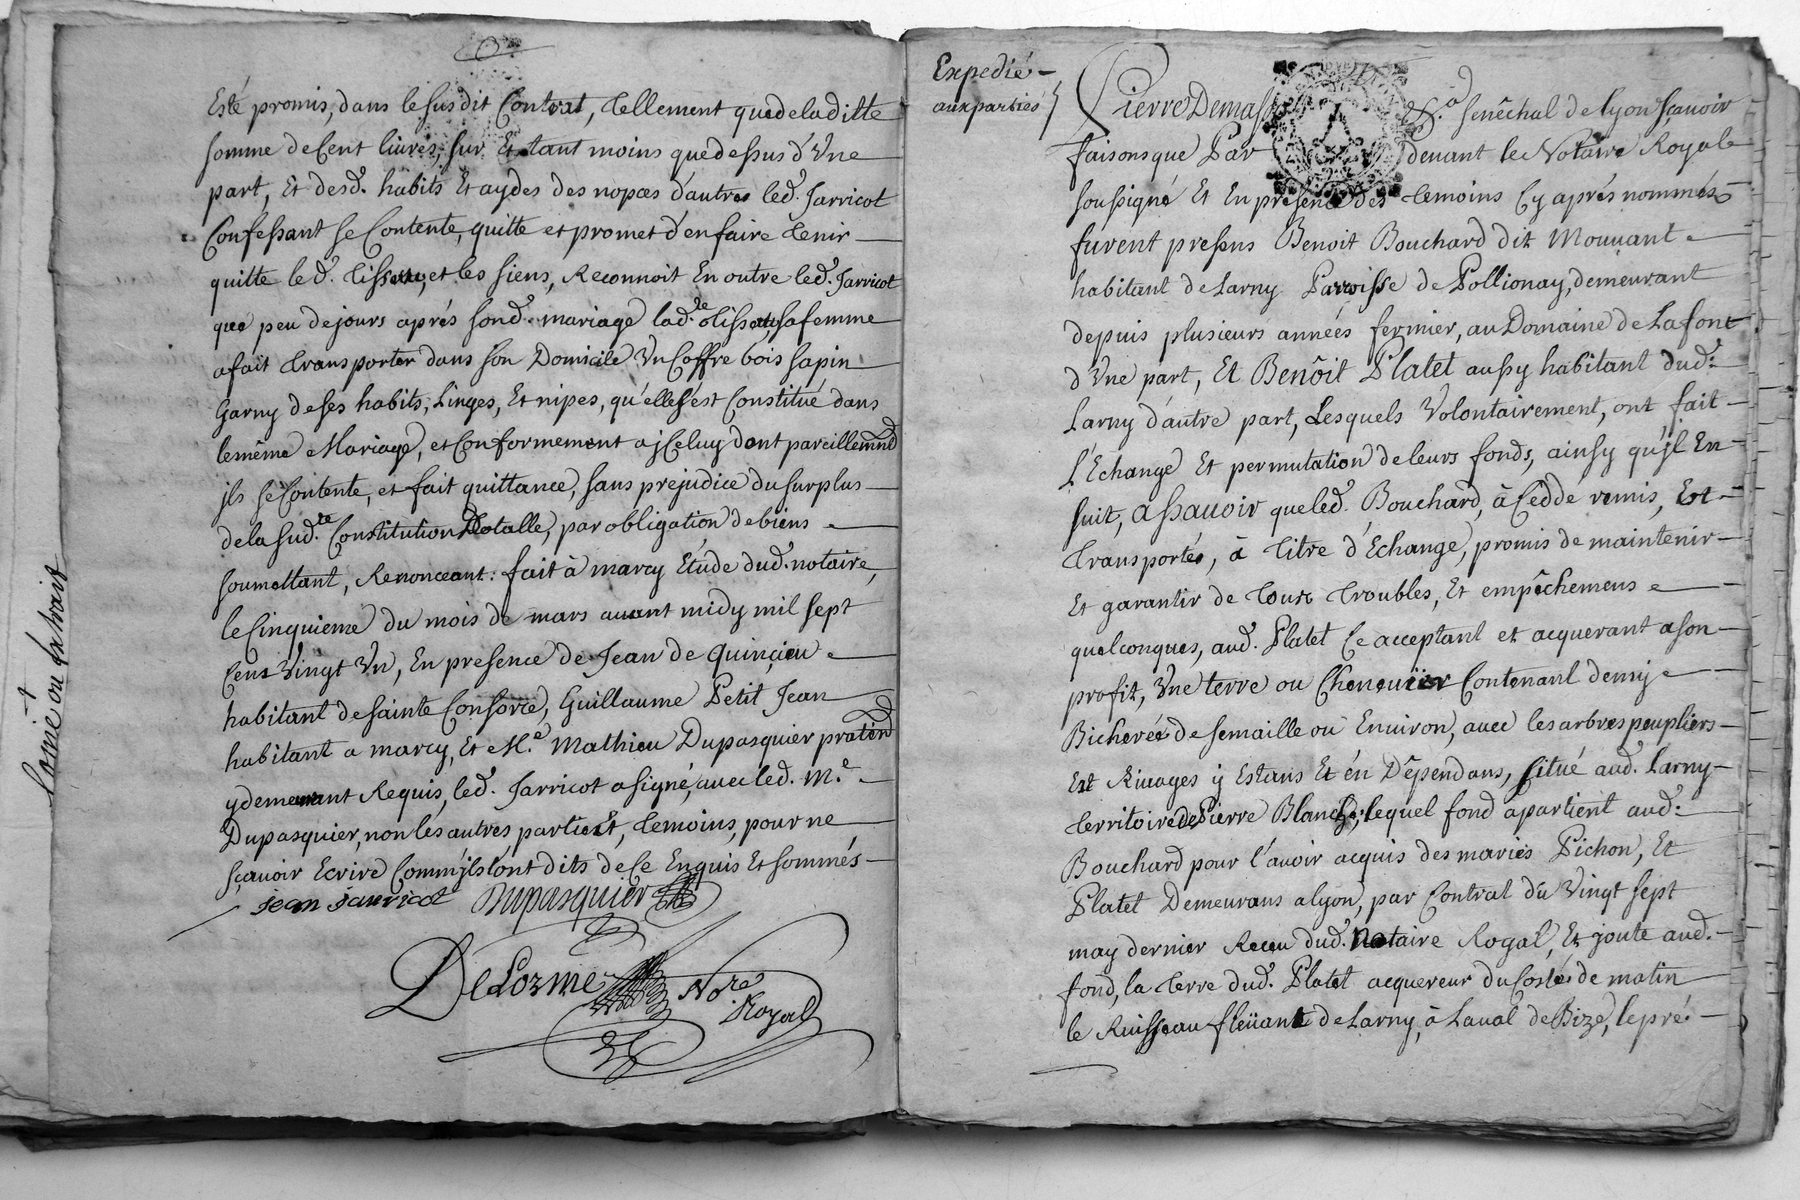 Esté promis, dans le susdit Contrat, tellement que de laditte
somme de Cent livres, sur Et tant moins que dessus d'Une
part, Et desd. habits Et aydes des nopces d'autres led. Jarricot
Confessant se Contente, quitte et promet d'en faire tenir
quitte led. Tisseur, et les siens, Reconnoit En outre led. Jarricot
que peu de jours aprés sond. mariage lad.te Tisseur sa femme
a fait transporter dans son Domicile Un Coffre bois sapin
Garny de ses habits, Linges, Et nipes, qu'elle s'ést Constitué dans
le même Mariage, et Conformement a jCeluy dont pareillement
jls se Contente, et fait quittance, sans prejudice du surplus
de la sud.te Constitution Dotalle, par obligation de biens
soumettant, Renonceant: fait à marcy Etude dud. notaire,
le Cinquieme du mois de mars avant midy mil sept
Cens Vingt Un, En presence de Jean de Quinçieu
habitant de sainte Consorce, Guillaume Petit Jean
habitant a marcy, Et M.e Mathieu Dupasquier praticn
y demeurant Requis, led. Jarricot a signé, avec led. M.e
Dupasquier, non lés autres parties Et, temoins, pour ne
sçavoir Ecrire Comm'jls l'ont dits de Ce Enquis Et sommés
jean jarricot Dupasquier
DeLorme No.re
Royal
Expedié
aux parties
Pierre Demas S.a senêchal de lyon sçavoir
faisons que Par devant le Notaire Royale
soussigné Et En presence des temoins Cy aprés nommés
furent presens Benoit Bouchard dit Mouvant
habitant de Larny Parroisse de Pollionay, demeurant
depuis plusieurs années fermier, au Domaine de Lafont
d'Une part, Et Benôit Platet aussy habitant dud.
Larny d'autre part, Lesquels Volontairement, ont fait
L'Echange Et permutation de leurs fonds, ainsy qu'jl En
suit, assavoir que led. Bouchard, à Ceddé remis, Et
transportés, à titre d'Echange, promis de maintenir
Et garantir de tous troubles, Et empêchemens
quelconques, aud. Platet Ce acceptant et acquerant a son
profit, Une terre ou Chenevier Contenant demy
Bicherée de semaille ou Environ, avec les arbres peupliers
Est Rivages y Estans Et én Dêpendans, situé aud. Larny
territoire de Pierre Blanche, lequel fond apartient aud.
Bouchard pour l'avoir acquis des mariés Pichon, Et
Platet Demeurans a lyon, par Contrat du Vingt sept
may dernier Receu dud. Notaire Royal, Et joute aud.
fond, la terre dud. Platet acquereur du Costés de matin
le Ruisseau flëuant de Larny, à Laval de Bize, le pré
Copie ou Extrait